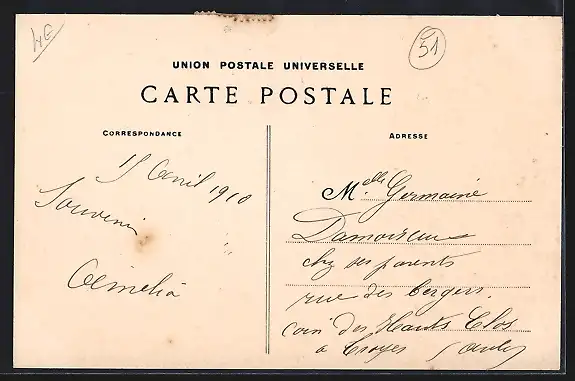 51
UNION POSTALE UNIVERSELLE
CARTE POSTALE
CORRESPONDANCE
ADRESSE
15 Avril 1910
Souvenir
M.elle Germaine
chez ses parents
rue des bergers.
coin des Hauts Clos
a Troyes (Aube)